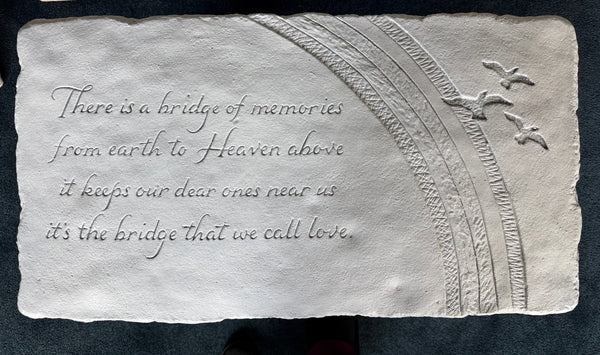 There is a bridge of memories
from earth to Heaven above
it keeps our dear ones near us
it's the bridge that we call love.